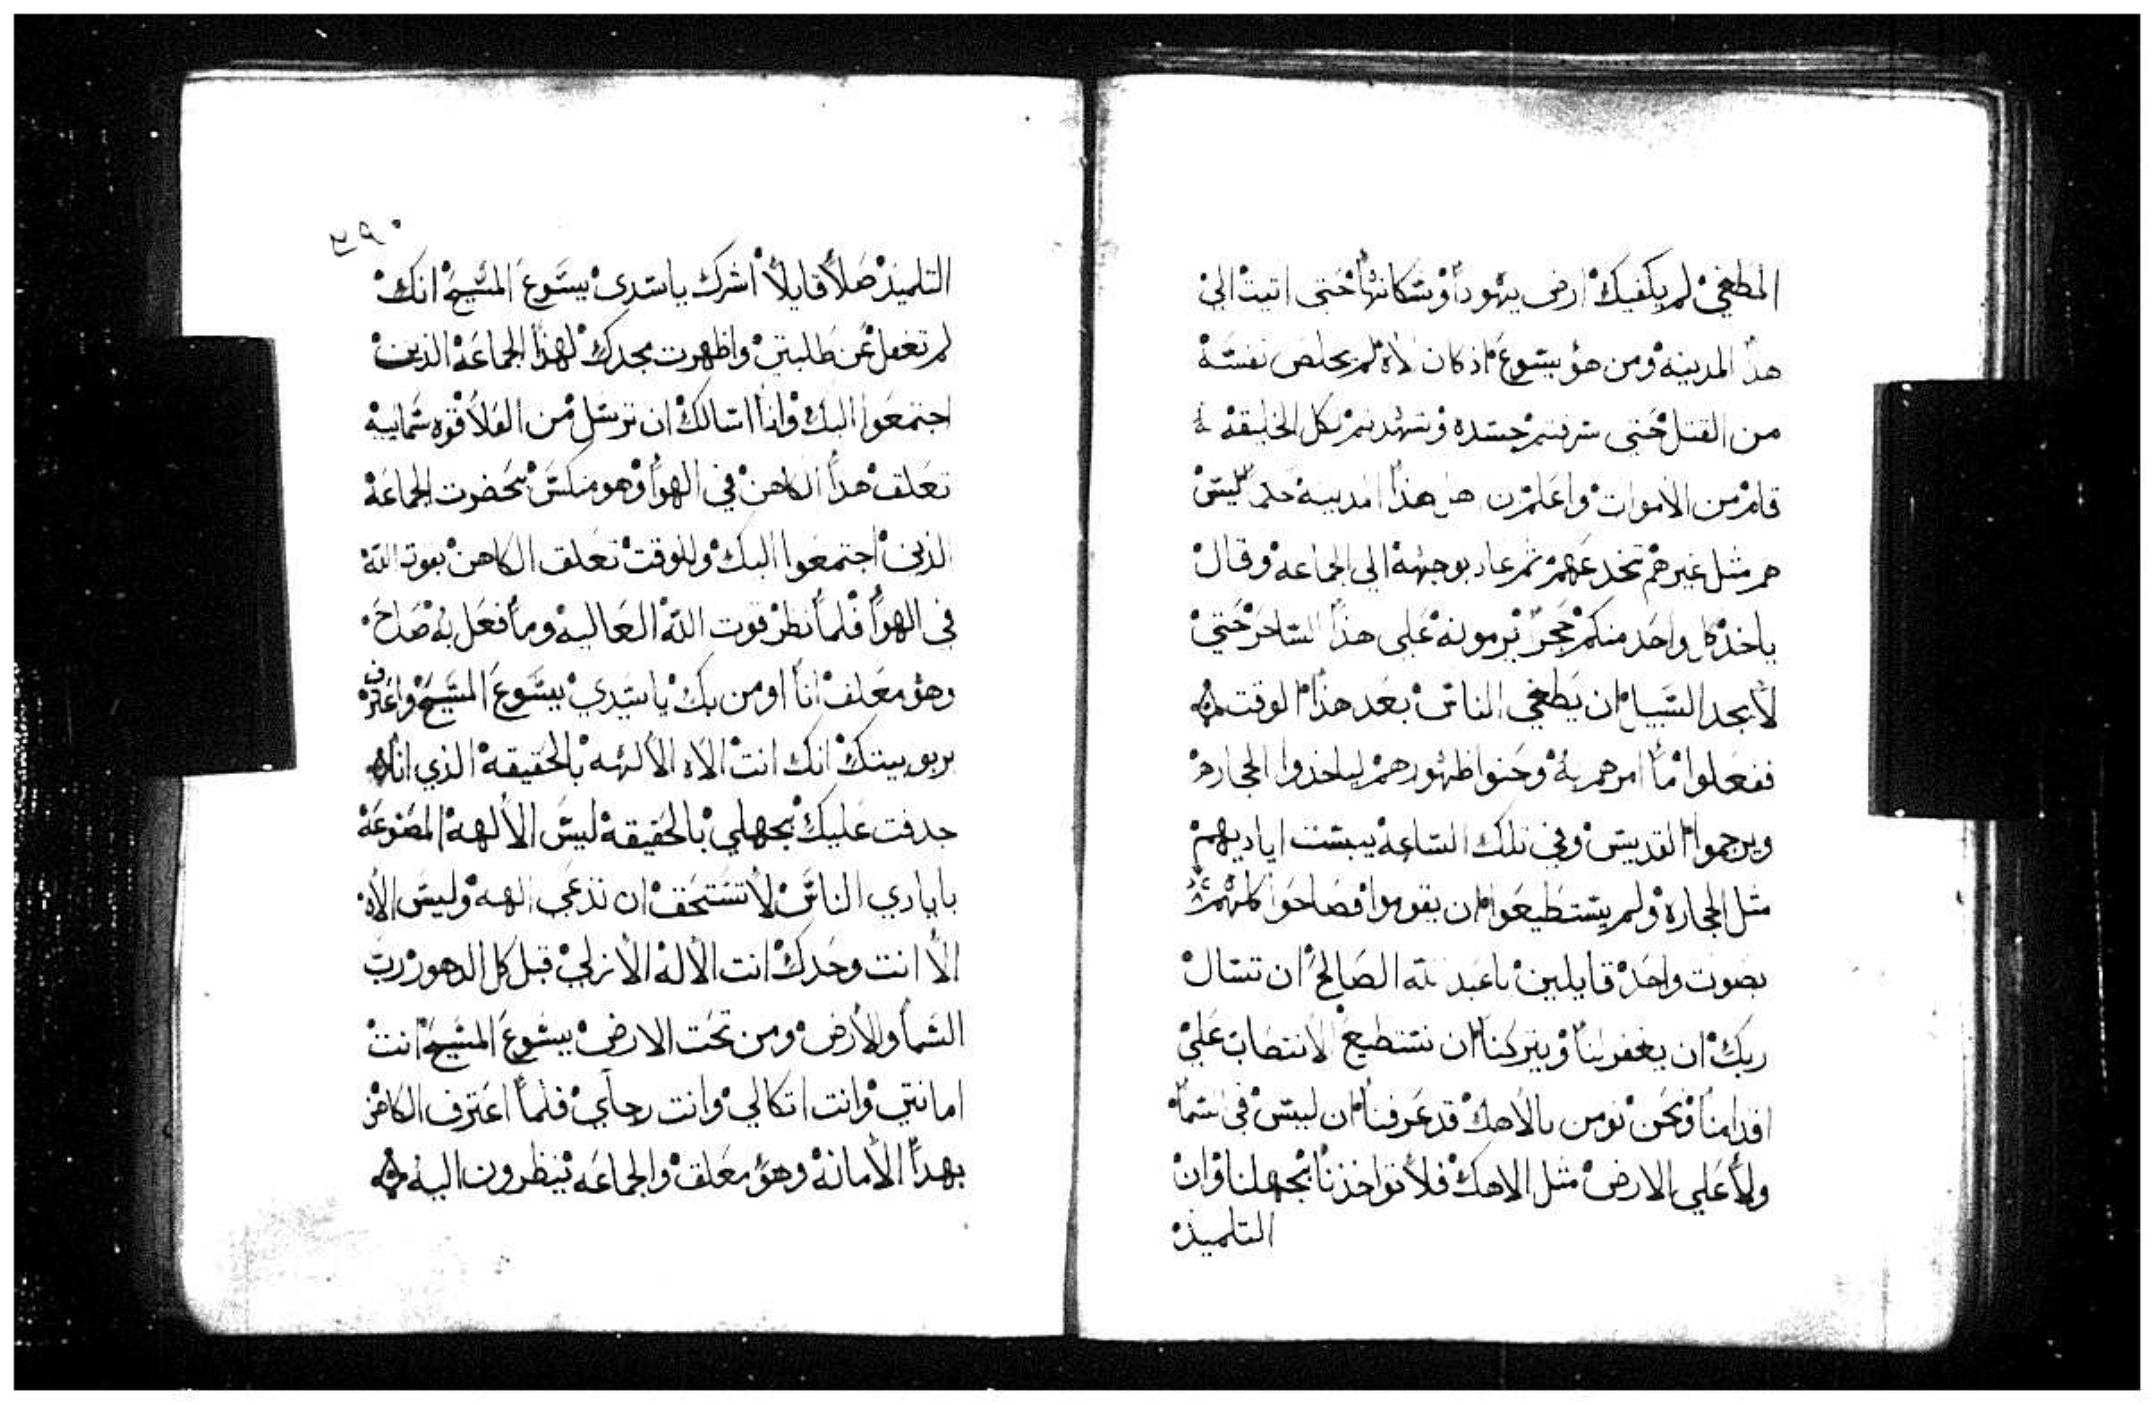 المطغي لم يكفيك ارض يهودا وسكانها حتى اتيت الي
هذ المدينه ومن هو يسوع اذ كان الاه لم يخلص نفسه
من القتل حتى سرقتم جسده وشهدتم لكل الخليقه
قام من الاموات واعلم ن هذا المدينه ليس
هم مثل غيرهم تخدعهم ثم عاد بوجهه الي الجماعه وقال
ياخذ كل واحد منكم حجر يرمونه على هذا الساحر حتي
لا يجد السبيل ان يطغي الناس بعد هذا الوقت
ففعلوا ما امرهم به وحنوا ظهورهم لياخذوا الحجاره
ويرجموا القديس وفي تلك الساعه يبست اياديهم
مثل الحجاره ولم يستطيعوا ان يقوموا فصاحوا كلهم
بصوت واحد قايلين يا عبد لله الصالح ان تسال
ربك ان يغفر لنا ويتركنا ان نستطيع الانتصاب علي
اقدامنا ونحن نومن بالاهك قد عرفنا ان ليس في السما
ولا علي الارض مثل الاهك فلا تواخذنا بجهلنا وان
التلميذ
٢٩٠
التلميذ صلا قايلا اشكرك ياسيدى يسوع المسيح انك
لم تغفل عن طلبتي واظهرت مجدك لهذا الجماعه الذين
اجتمعوا اليك وانا اسالك ان ترسل من العلا قوه سماييه
تعلق هذا الكاهن في الهوا وهو منكس بحضرت الجماعه
الذين اجتمعوا اليك وللوقت تعلق الكاهن بقوت الله
في الهوا فلما نظر قوت الله العاليه وما فعل به صاح
وهو معلق انا اومن بك ياسيدي يسوع المسيح واعترف
بربوبيتك انك انت الاه الالهه بالحقيقه الذي انا
جدفت عليك بجهلي بالحقيقه ليس الالهه المصنوعه
بايادي الناس لا تستحق ان تدعي الهه وليس الاه
الا انت وحدك انت الاله الازلي قبل كل الدهور رب
السما والارض ومن تحت الارض يسوع المسيح انت
امانتي وانت اتكالي وانت رجاي فلما اعترف الكاهن
بهدا الامانه وهو معلق والجماعه ينظرون اليه